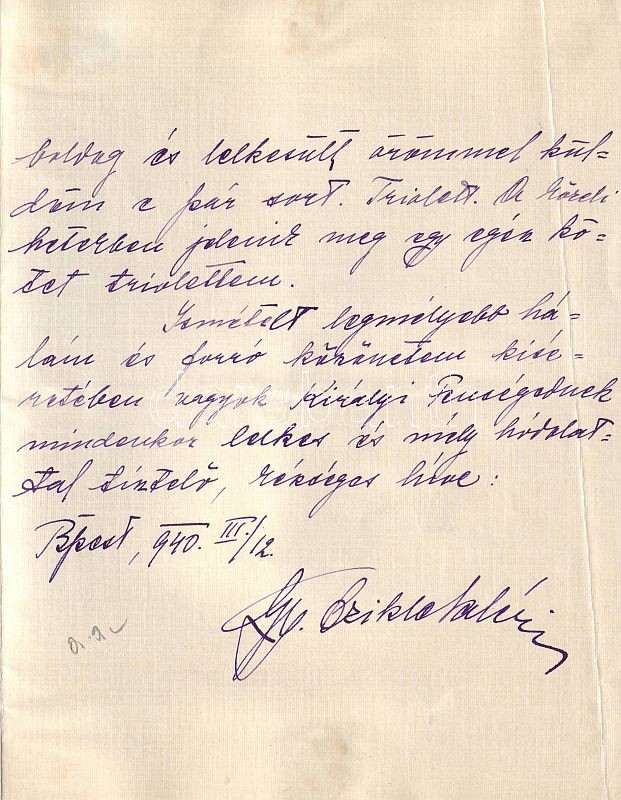 boldog és lelkesült örömmel kül-
döm e pár sort. Triolett. A közeli
hetekben jelenik meg egy egész kö-
tet triolettem.
Ismételt legmélyebb há-
lám és forró köszönetem kísé-
retében vagyok Királyi Fenségednek
mindenkor lelkes és mély hódolat-
tal tisztelő, készséges híve:
Bpest, 940. III./12.
Szikla